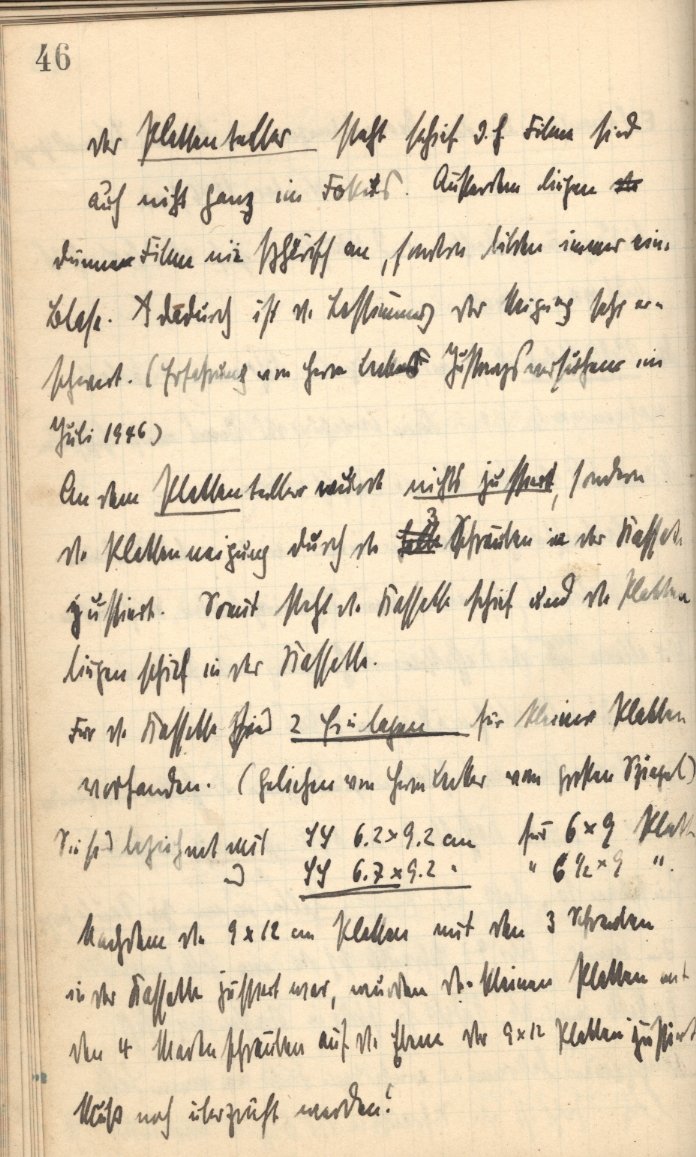 46
Der Plattenteller steht schief d.h. Filme sind
auch nicht ganz im Fokus. Ausserdem liegen
dünne Filme nie scharf an, sondern bilden immer eine
Blase. Dadurch ist die Bestimmung der Neigung sehr er-
schwert. (Erfahrung von Herrn Justierungsversuchen im
Juli 1946)
An dem Plattenteller wurde nichts justiert, sondern
die Plattenneigung durch die 3 Schrauben in der Kassette
justiert. Somit steht die Kassette schief und die Platten
liegen schief in der Kassette.
Für die Kassette sind 2 Einlagen für kleinere Platten
vorhanden. (Geliehen von Herrn vom grossen Spiegel)
Sie sind bezeichnet mit SS 6.2 × 9.2 cm für 6 × 9 Platten
und SS 6.7 × 9.2 " " 6½ × 9 "
Nachdem die 9 × 12 cm Platten mit den 3 Schrauben
in der Kassette justiert war, wurden die kleinen Platten mit
den 4 Madenschrauben auf die Ebene der 9 × 12 Platten justiert
Muss noch überprüft werden!